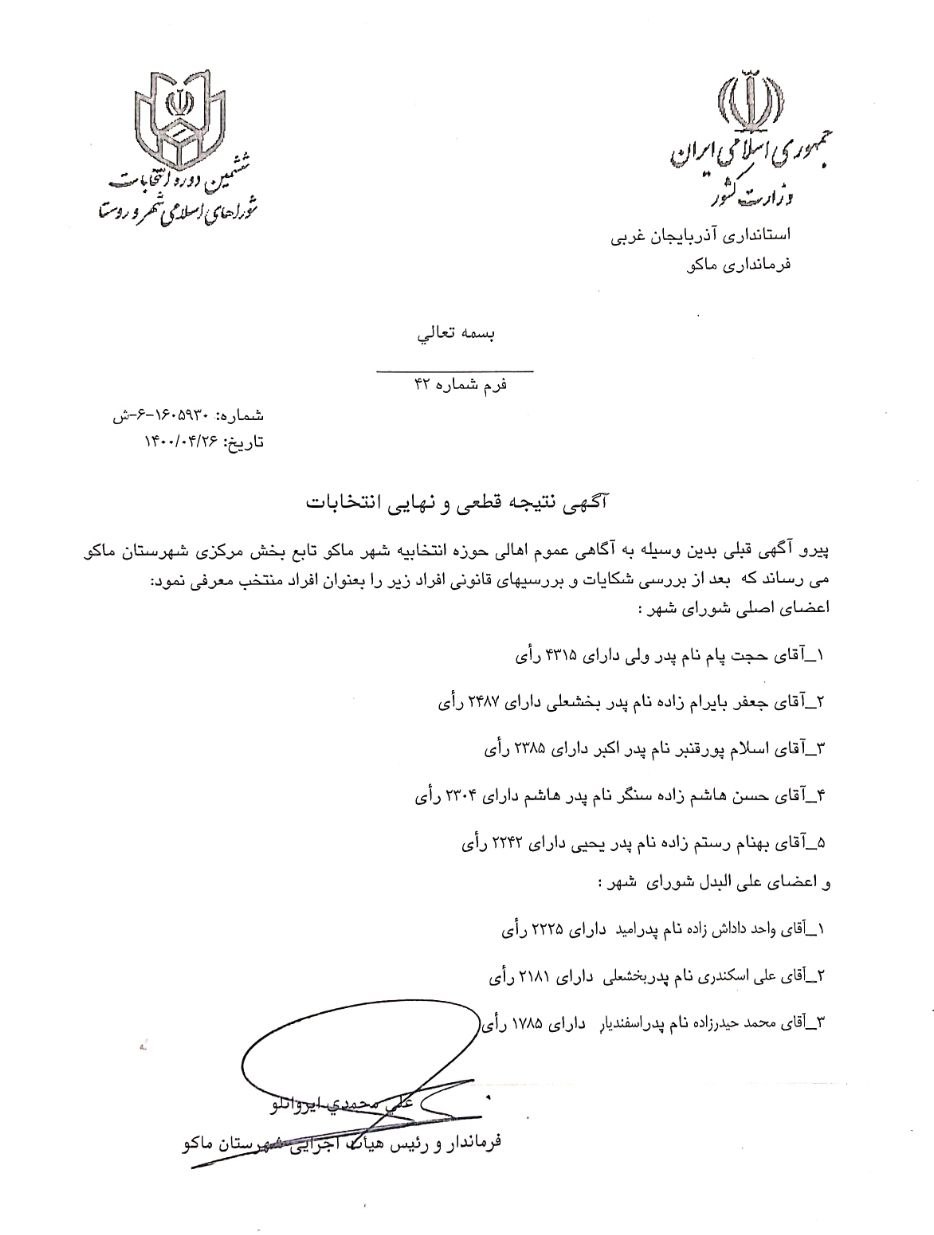 جمهوری اسلامی ایران
وزارت کشور
استانداری آذربایجان غربی
فرمانداری ماکو
ششمین دوره انتخابات
شوراهای اسلامی شهر و روستا
بسمه تعالي
فرم شماره ۴۲
شماره: ۱۶۰۵۹۳۰-۶-ش
تاریخ: ۱۴۰۰/۰۴/۲۶
آگهی نتیجه قطعی و نهایی انتخابات
پیرو آگهی قبلی بدین وسیله به آگاهی عموم اهالی حوزه انتخابیه شهر ماکو تابع بخش مرکزی شهرستان ماکو
می رساند که بعد از بررسی شکایات و بررسیهای قانونی افراد زیر را بعنوان افراد منتخب معرفی نمود:
اعضای اصلی شورای شهر :
۱_آقای حجت پام نام پدر ولی دارای ۴۳۱۵ رأی
۲_آقای جعفر بایرام زاده نام پدر بخشعلی دارای ۲۴۸۷ رأی
۳_آقای اسلام پورقنبر نام پدر اکبر دارای ۲۳۸۵ رأی
۴_آقای حسن هاشم زاده سنگر نام پدر هاشم دارای ۲۳۰۴ رأی
۵_آقای بهنام رستم زاده نام پدر یحیی دارای ۲۲۴۲ رأی
و اعضای علی البدل شورای شهر :
۱_آقای واحد داداش زاده نام پدرامید دارای ۲۲۲۵ رأی
۲_آقای علی اسکندری نام پدربخشعلی دارای ۲۱۸۱ رأی
۳_آقای محمد حیدرزاده نام پدراسفندیار دارای ۱۷۸۵ رأی
علي محمدي ایروانلو
فرماندار و رئیس هیأت اجرایی شهرستان ماکو